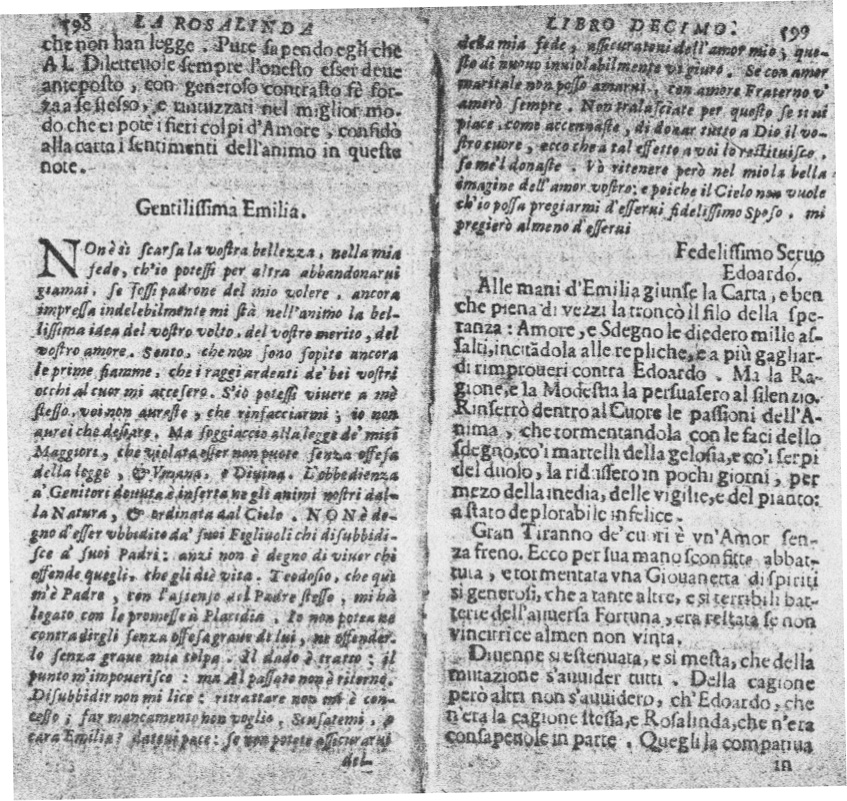 598 LA ROSALINDA
che non han legge. Pure sapendo egli che
AL Dilettevole sempre l'onesto esser deue
anteposto, con generoso contrasto fè for-
za a se stesso, e rintuzzati nel miglior mo-
do che ci potè i fieri colpi d'Amore, confidò
alla carta i sentimenti dell'animo in queste
note.
Gentilissima Emilia.
NOn è sì scarsa la vostra bellezza, nella mia
fede, ch'io potessi per altra abbandonarui
giamai, se fossi padrone del mio volere, ancora
impressa indelebilmente mi stà nell'animo la bel-
lissima idea del vostro volto, del vostro merito, del
vostro amore. Sento, che non sono sopite ancora
le prime fiamme, che i raggi ardenti de' bei vostri
occhi al cuor mi accesero. S'io potessi viuere a mè
stesso, voi non aureste, che rinfacciarmi; io non
aurei che desiare. Ma soggiaccio alla legge de' miei
Maggiori, che violata esser non puote senza offesa
della legge, & Vmana, e Diuina. L'obbedienza
a' Genitori douuta è inserta ne gli animi nostri dal-
la Natura, & ordinata dal Cielo. NON è de-
gno d'esser vbbidito da' suoi Figliuoli chi disubbidi-
sce a' suoi Padri: anzi non è degno di viuer chi
offende quegli, che gli diè vita. Teodosio, che quì
m'è Padre, con l'assenso del Padre stesso, mi hà
legato con le promesse à Placidia. Io non potea ne
contradirgli senza offesa graue di lui, ne offender-
lo senza graue mia colpa. Il dado è tratto: il
punto m'impouerisce: ma Al passato non è ritorno.
Disubbidir non mi lice: ritrattare non mi è con-
cesso; far mancamento non voglio. Scusatemi, o
cara Emilia? dateui pace: se non potete assicurarui
del-
LIBRO DECIMO. 599
della mia fede, assicurateui dell'amor mio; que-
sto di nuouo inuiolabilmente vi giuro. Se con amor
maritale non posso amarui, con amore Fraterno v'
amerò sempre. Non tralasciate per questo se vi
piace, come accennaste, di donar tutto a Dio il vo-
stro cuore, ecco che a tal effetto a voi lo restituisco,
se me'l donaste. Vò ritenere però nel mio la bella
imagine dell'amor vostro: e poiche il Cielo non vuole
ch'io possa pregiarmi d'esserui fidelissimo Sposo, mi
pregierò almeno d'esserui
Fedelissimo Seruo
Edoardo.
Alle mani d'Emilia giunse la Carta, e ben
che piena di vezzi la troncò il filo della spe-
ranza: Amore, e Sdegno le diedero mille as-
salti, incitãdola alle repliche, e a più gagliar-
di rimproueri contra Edoardo. Ma la Ra-
gione, e la Modestia la persuasero al silenzio.
Rinserrò dentro al Cuore le passioni dell'A-
nima, che tormentandola con le faci dello
sdegno, co'i martelli della gelosia, e co'i serpi
del duolo, la ridussero in pochi giorni, per
mezo della inedia, delle vigilie, e del pianto:
a stato deplorabile infelice.
Gran Tiranno de' cuori è vn'Amor sen-
za freno. Ecco per sua mano sconfitta abbat-
tuta, e tormentata vna Giouanetta di spiriti
si generosi, che a tante altre, e si terribili bat-
terie dell'auuersa Fortuna, era restata se non
vincitrice almen non vinta.
Diuenne si estenuata, e si mesta, che della
mutazione s'auuider tutti. Della cagione
però altri non s'auuidero, ch'Edoardo, che
n'era la cagione stessa, e Rosalinda, che n'era
consapeuole in parte. Quegli la compatiua
in